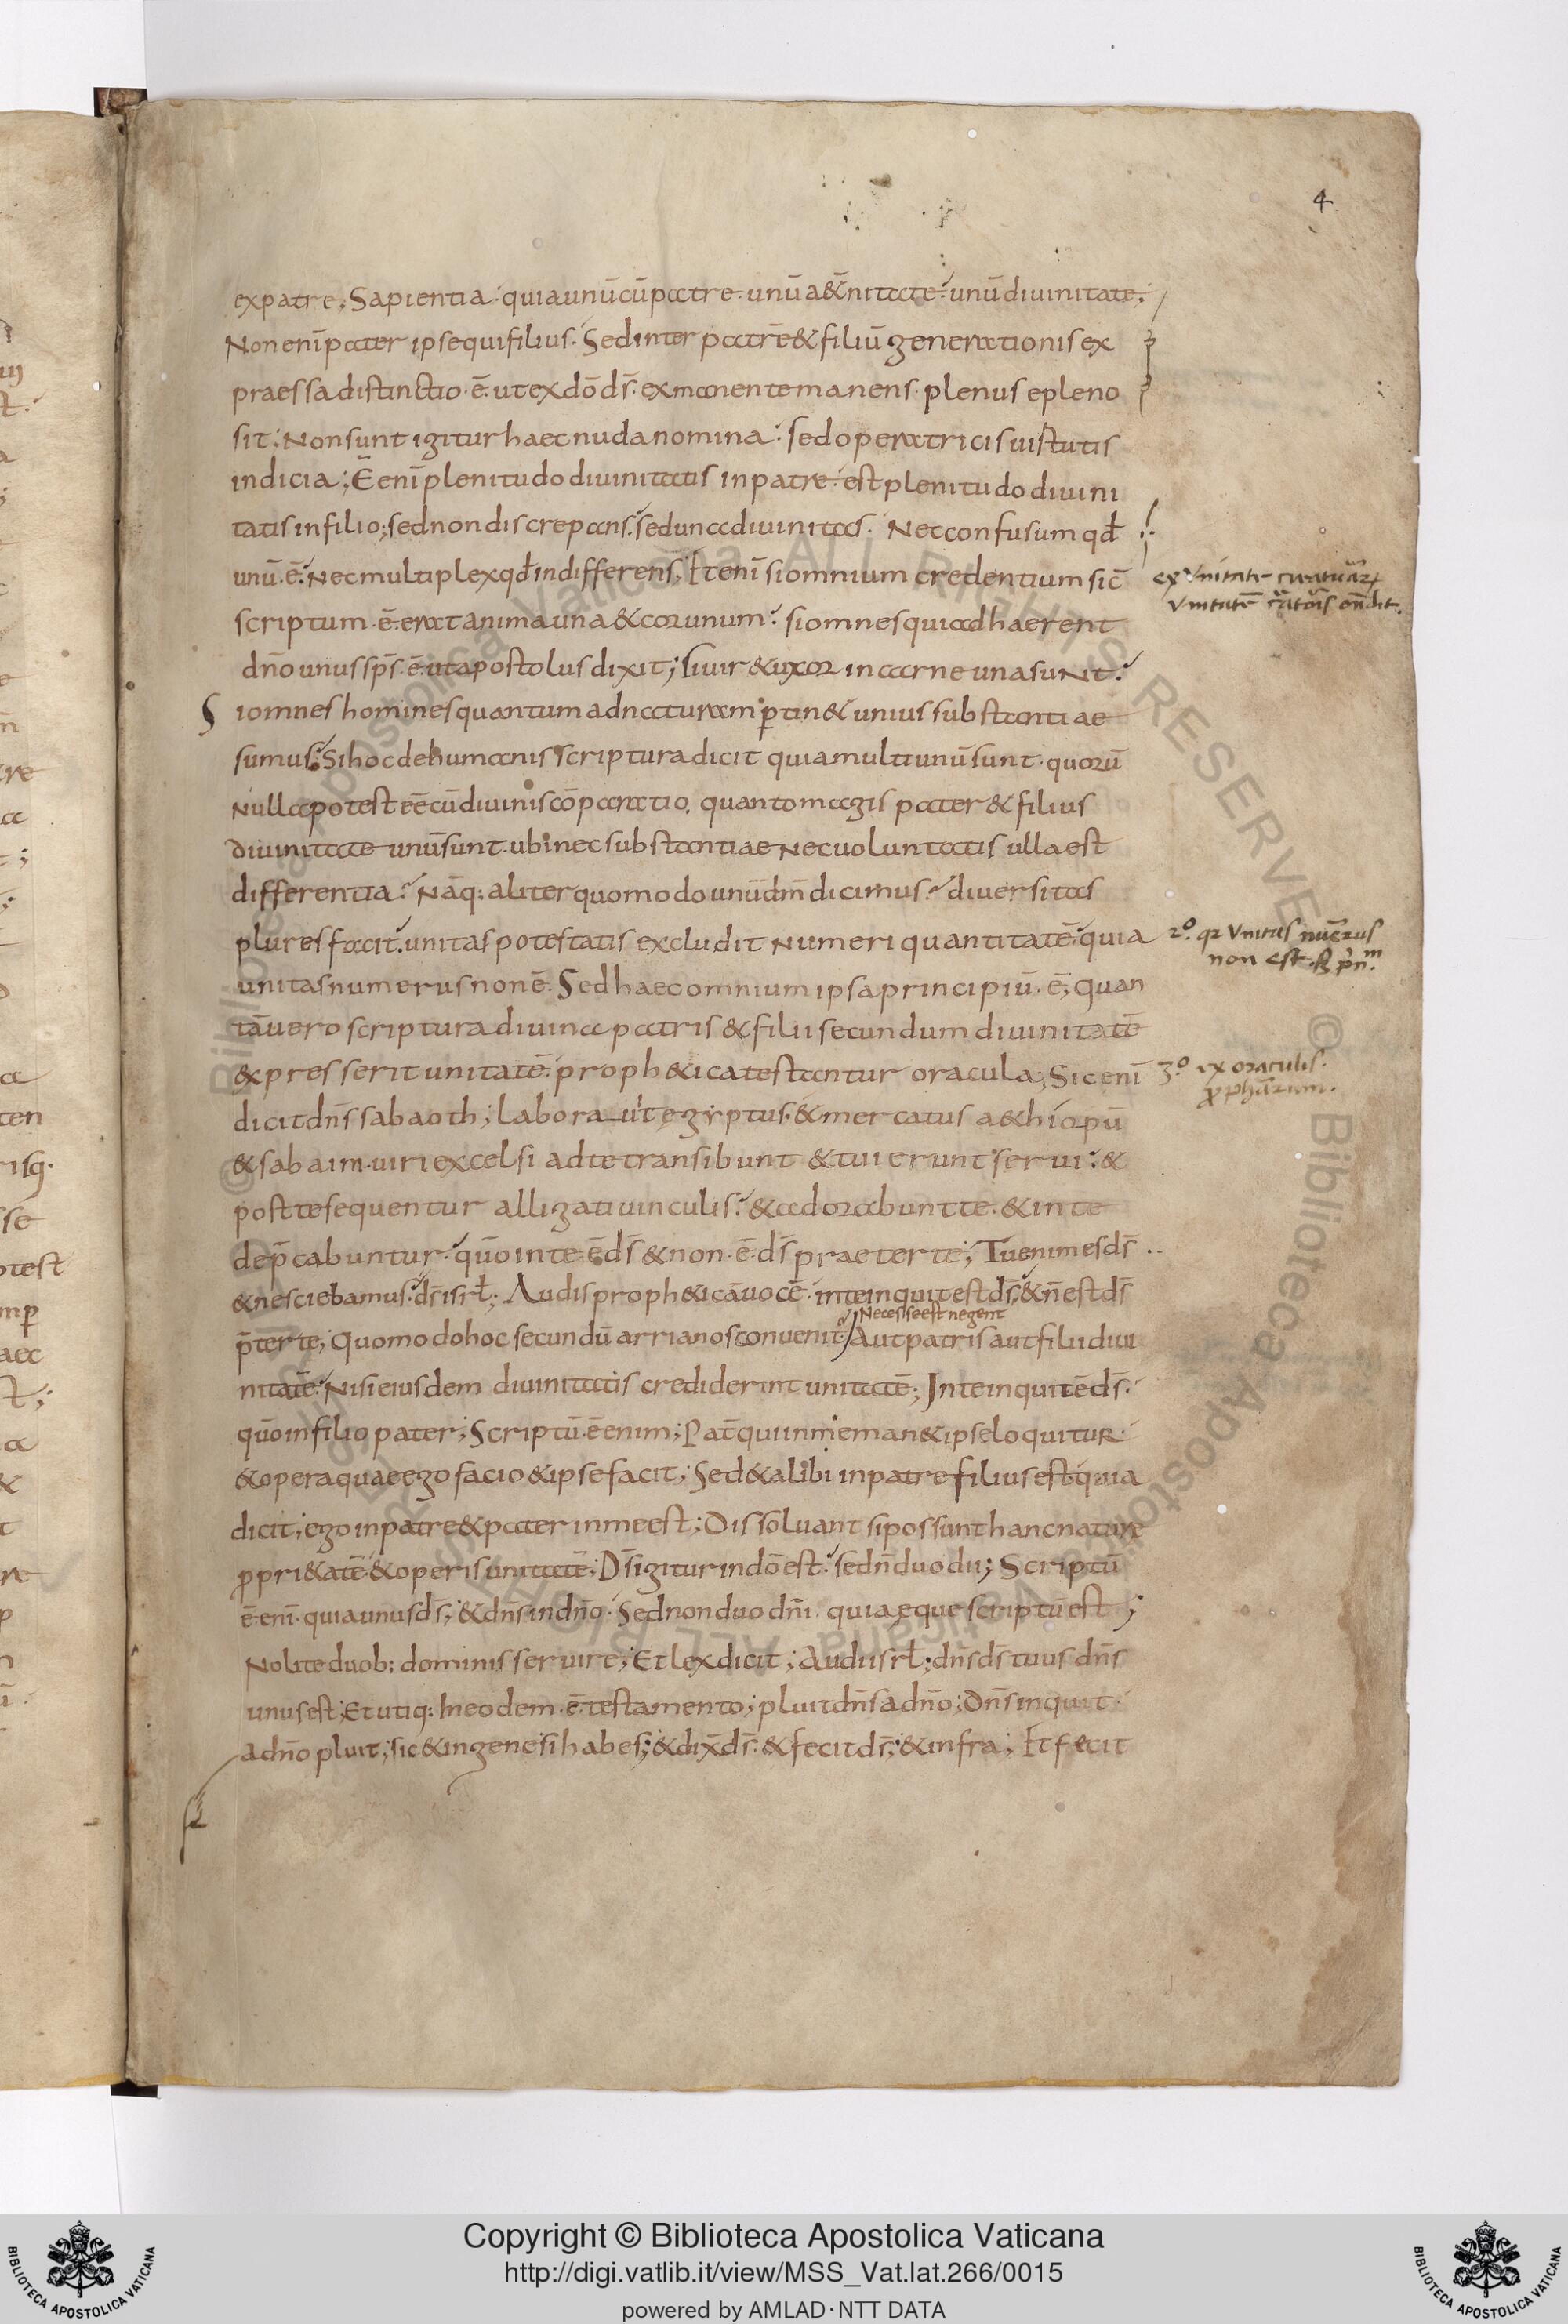 4
expatre; Sapientia: quia unū cū patre. unū a&̄nitate: unū diuinitate;
Non enī pater ipse qui filius. Sed inter patrē & filiū generationis ex
praessa distinctio .ē. ut ex dō d̄s. ex manente manens. plenus e pleno
sit: Non sunt igitur haec nuda nomina: sed operatricis uirtutis
indicia; Ē enī plenitudo diuinitatis in patre: est plenitudo diuini
tatis in filio; sed non discrepans: sed una diuinitas. Nec confusum qđ
unū .ē. Nec multiplex qđ indifferens; Etenī si omnium credentium sic̄
scriptum .ē. erat anima una & cor unum: si omnes qui adhaerent
dn̄o unus sp̄s .ē. ut apostolus dixit; si uir & uxor in carne una sunt:
S iomnes homines quantum ad naturam ꝑtin& unius substantiae
sumus: Si hoc de humanis scriptura dicit quia multi unū sunt. quorū
Nulla potest eē cū diuinis cōparatio. quanto magis pater & filius
Diuinitate unū sunt. ubi nec substantiae nec uoluntatis ulla est
differentia: Nāq: aliter quomodo unū dm̄ dicimus: diuersitas
plures facit. unitas potestatis excludit numeri quantitatē: quia
unitas numerus non ē. Sed haec omnium ipsa principiū .ē; quan
tā uero scriptura diuina patris & filii secundum diuinitatē
&presserit unitatē: proph&ica testantur oracula; Sic enī
dicit dn̄s sabaoth; labora uit egyptus. & mercatus a&hiopū
& sabaim. uiri excelsi ad te transibunt & tui erunt serui: &
post te sequentur alligati uinculis: & adorabunt te. & in te
dep̄cabuntur: quō in te ē d̄s & non .ē. d̄s praeter te; Tu enim es d̄s
& nesciebamus. d̄s isrł; Audis proph&icā uocē. in te inquit est d̄s, & n̄ est d̄s
Necesse est negent
p̄ter te; Quomodo hoc secundū arrianos conuenit: Aut patris aut filii diui
nitatē. Nisi eiusdem diuinitatis crediderint unitatē; In te inquit ē d̄s.
quō in filio pater; Scriptū .ē enim; Pat̄ qui in me man& ipse loquitur
& opera quae ego facio & ipse facit; Sed & alibi in patre filius est quia
dicit; ego in patre & pater in me est; Dissoluant si possunt hanc nature
ꝓpri&atē & operis unitatē; D̄s igitur in dō est: sed n̄ duo dii; Scriptū
ē enī. quia unus d̄s; & dn̄s in dn̄o. Sed non duo dn̄i. quia ęque scriptū est;
Nolite duob: dominis seruire; Et lex dicit; Audi isrł; dn̄s d̄s tuus dn̄s
unus est; Et utiq: In eodem .ē. testamento; pluit dn̄s a dn̄o; Dn̄s inquit
a dn̄o pluit; sic & in genesi habes; & dix̄ d̄s. & fecit d̄s; & infra; Et fecit
2º. qꝛ Vnitas
non est.
3º. ex oraculis.
Copyright © Biblioteca Apostolica Vaticana
http://digi.vatlib.it/view/MSS_Vat.lat.266/0015
powered by AMLAD·NTT DATA
BIBLIOTECA APOSTOLICA VATICANA
BIBLIOTECA APOSTOLICA VATICANA